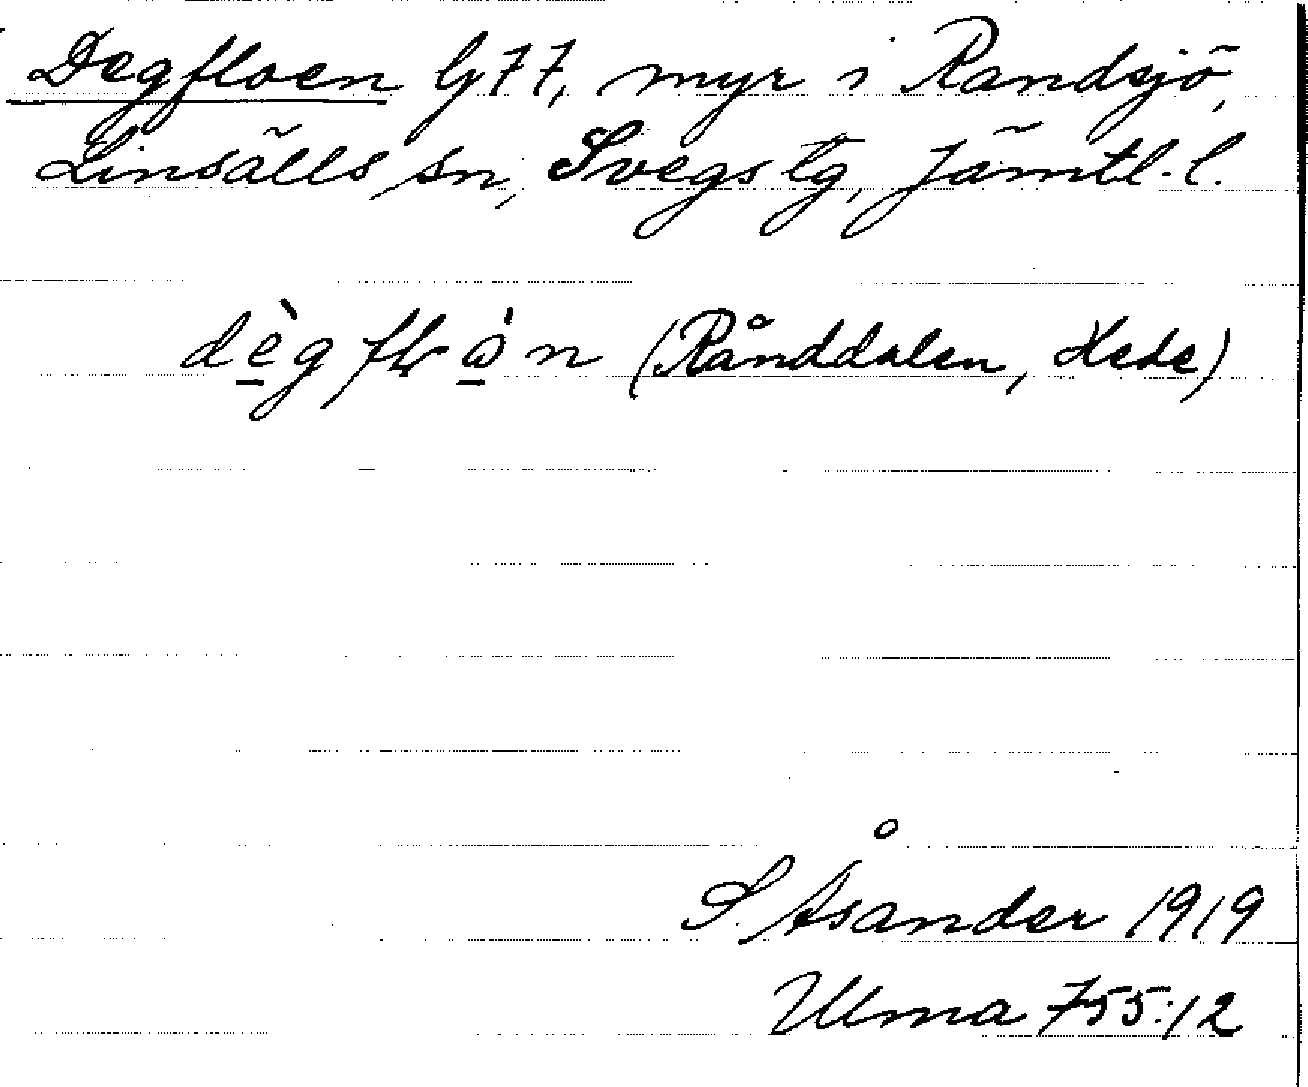 Degfloen G77, myr i Randsjö,
Linsälls sn, Svegs tg, Jämtl. l.
dègflὼn (Rånddalen, Hede)
S. Åsander 1919
Ulma 755:12